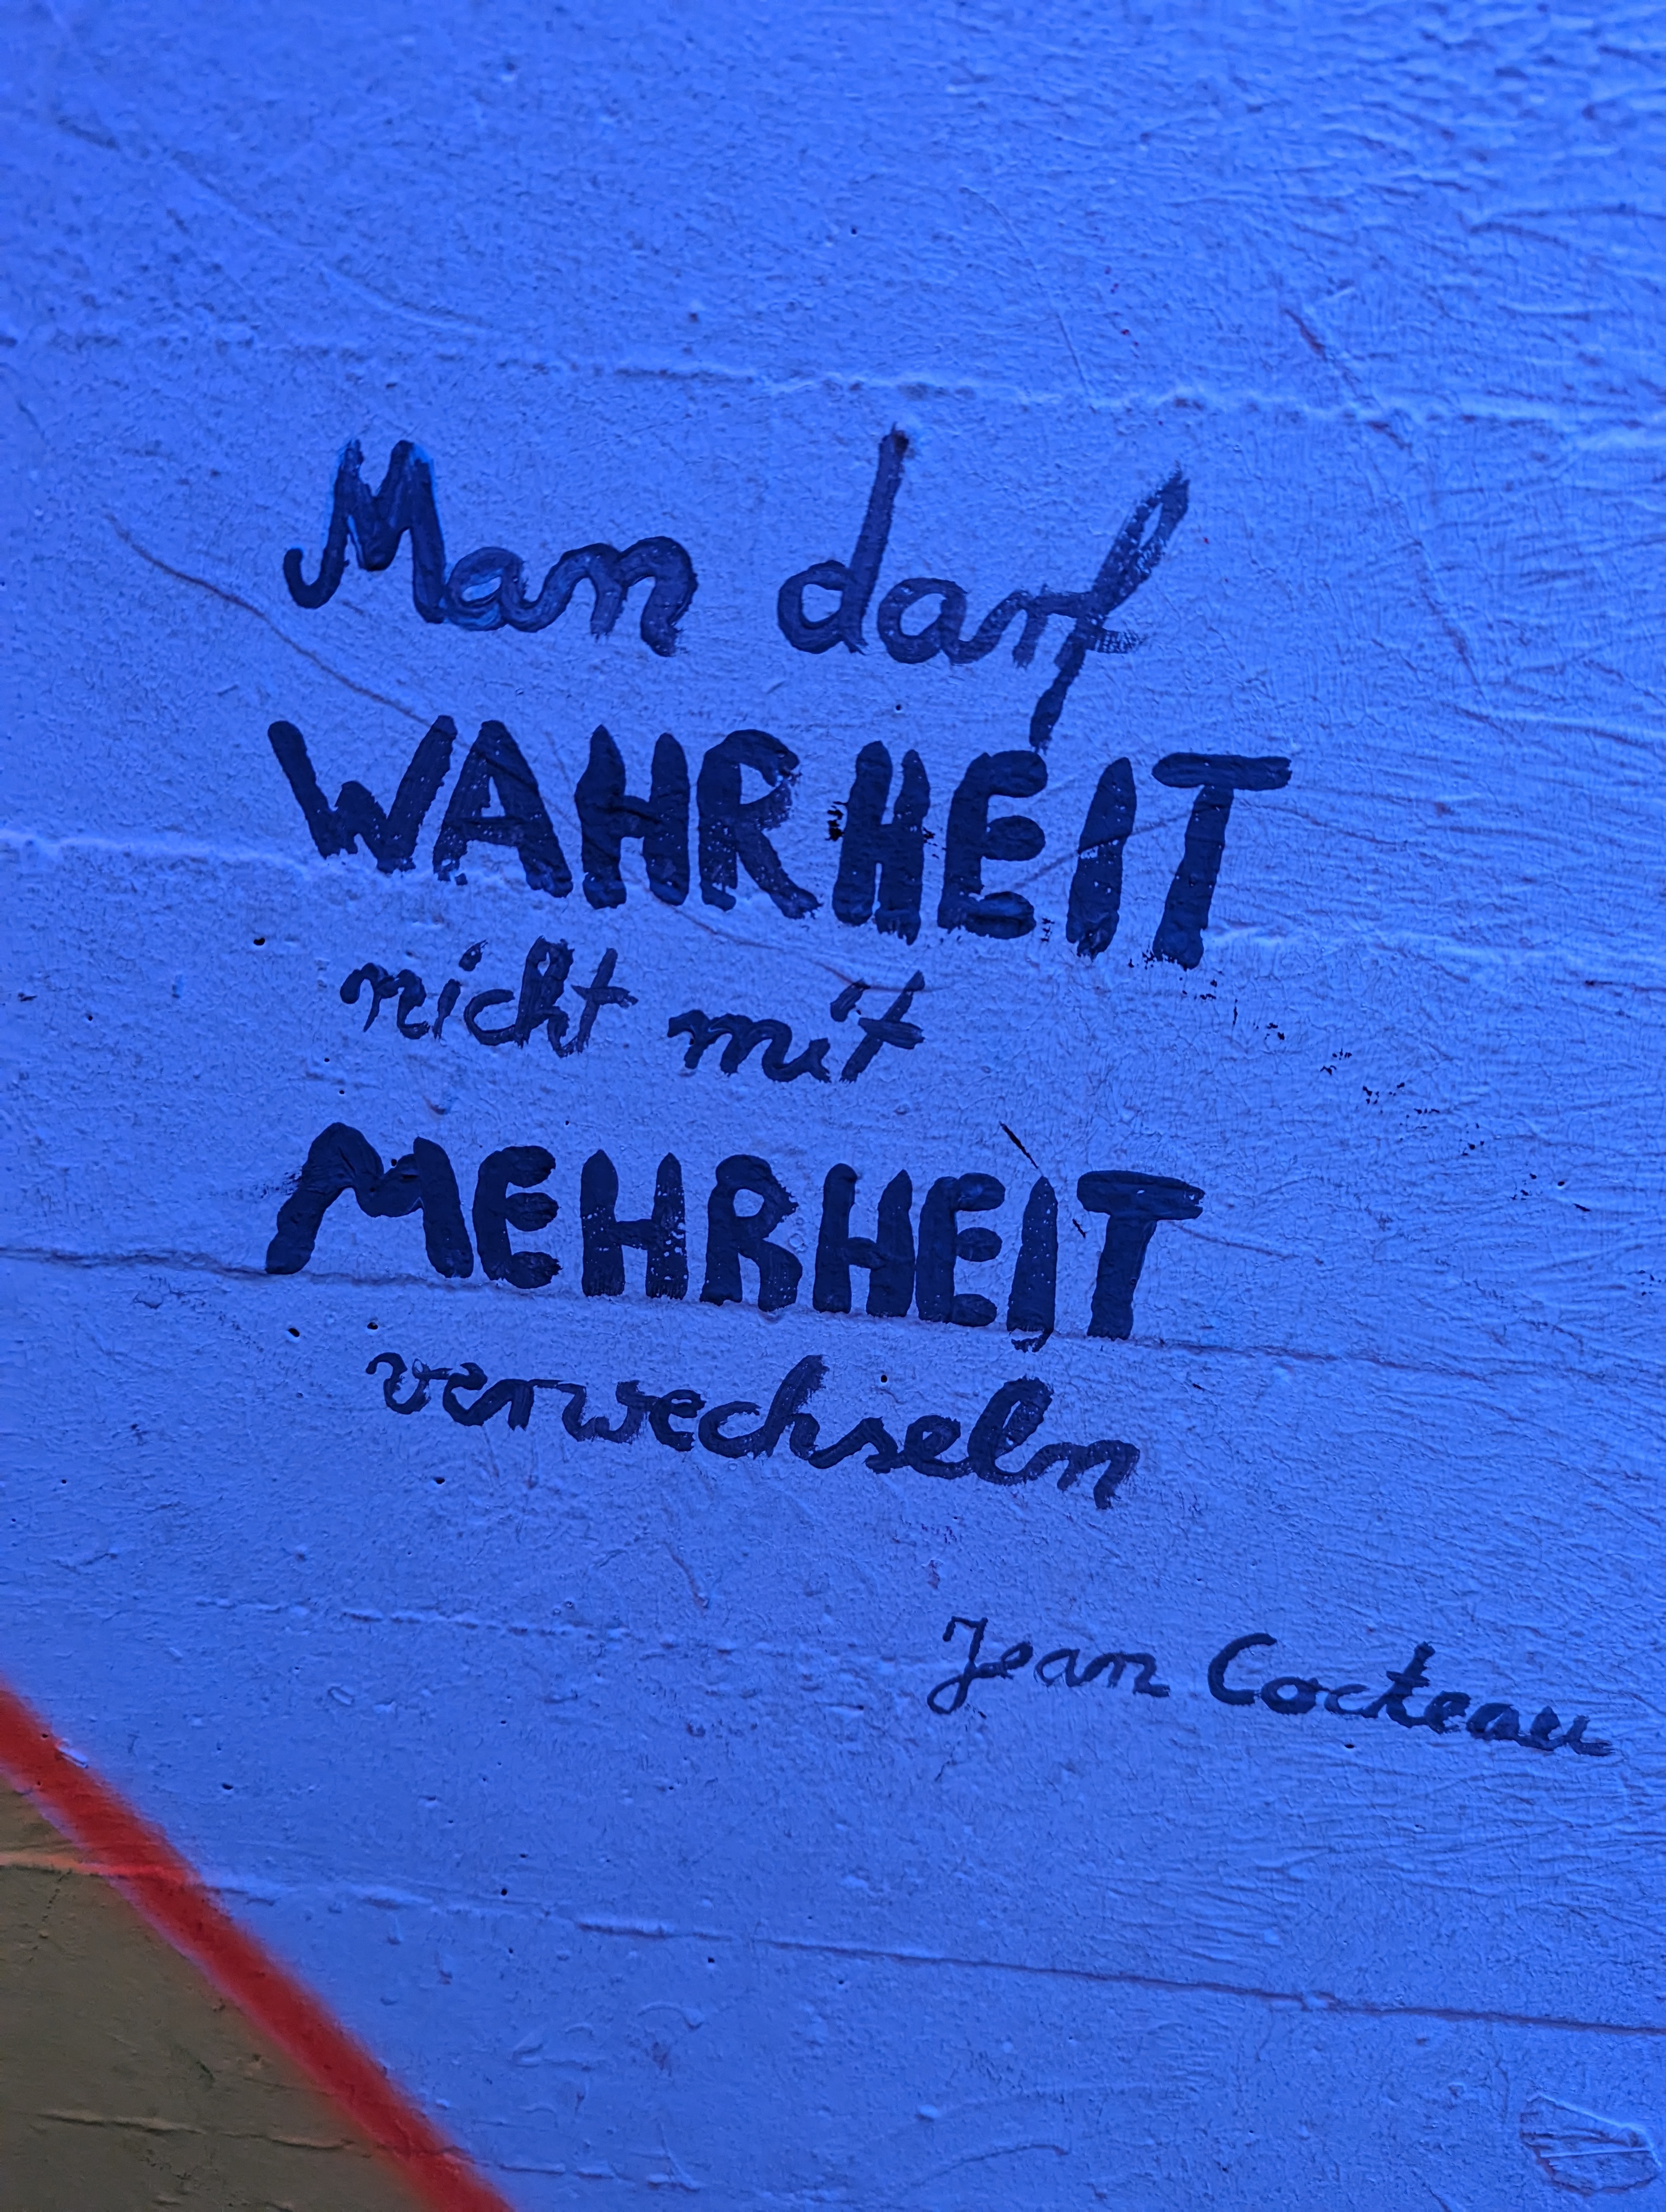 Man darf
WAHRHEIT
nicht mit
MEHRHEIT
verwechseln
Jean Cocteau